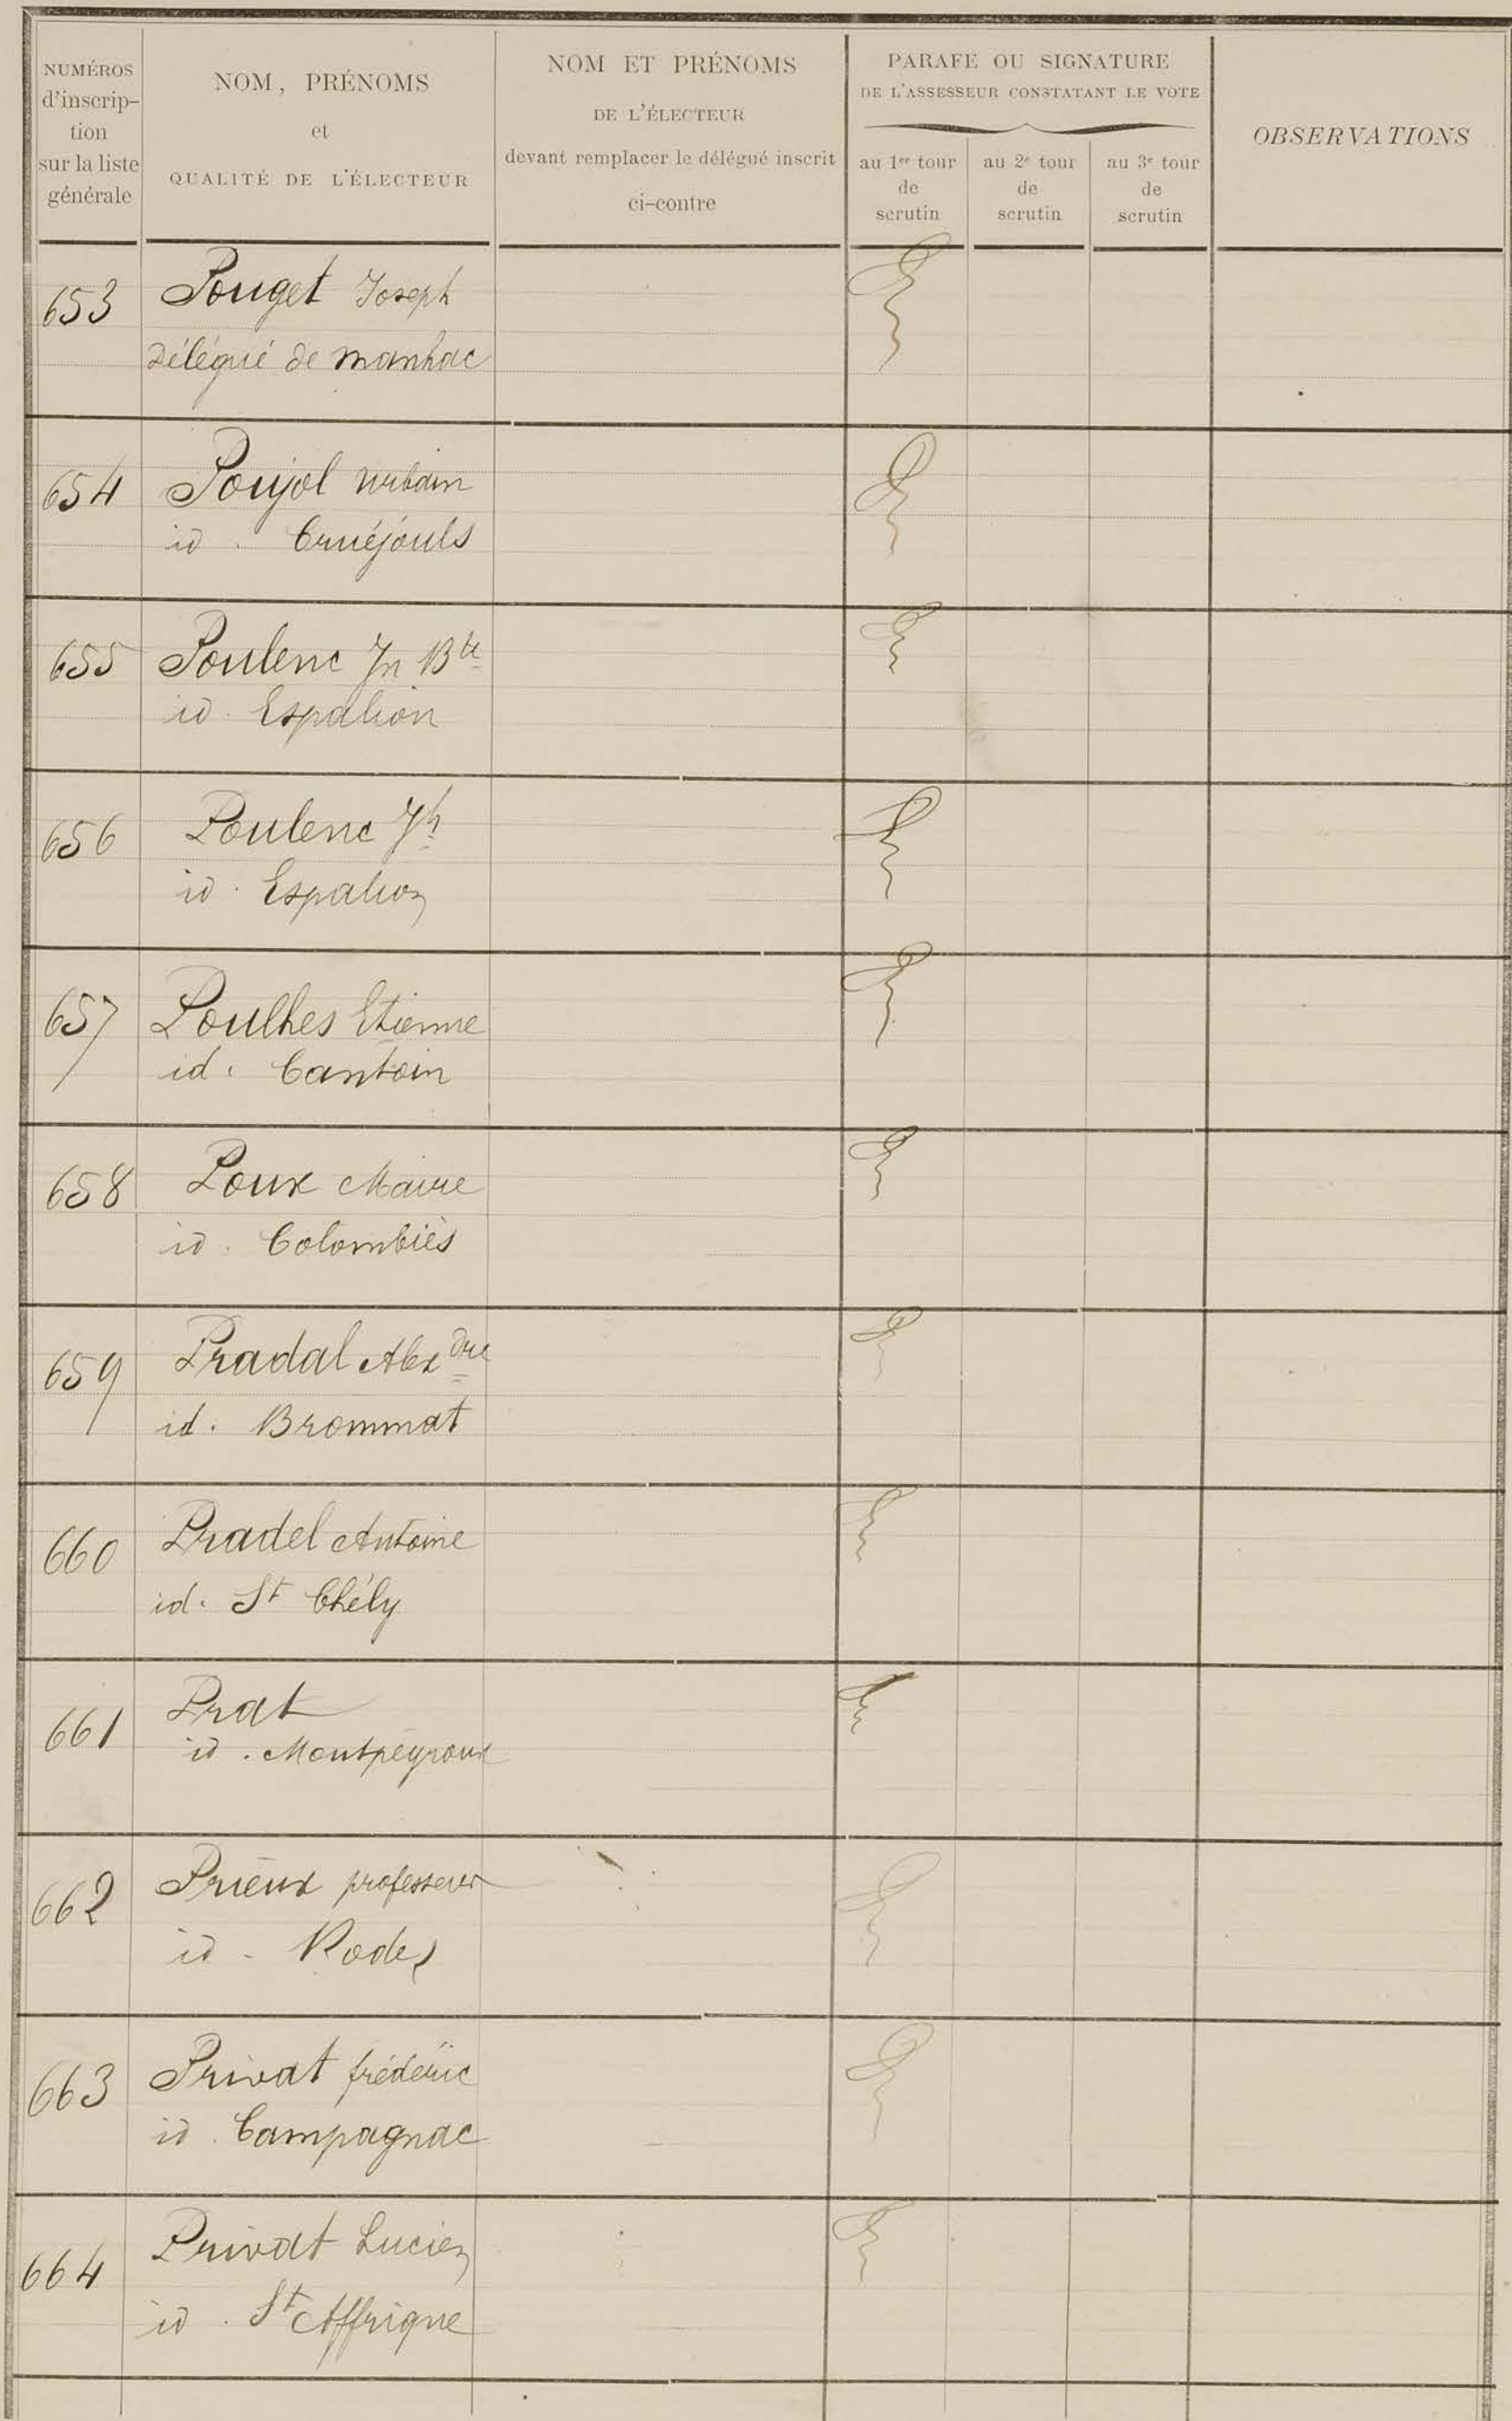 NUMÉROS
d'inscrip-
tion
sur la liste
générale
NOM, PRÉNOMS
et
QUALITÉ DE L'ÉLECTEUR
NOM ET PRÉNOMS
DE L'ÉLECTEUR
devant remplacer le délégué inscrit
ci-contre
PARAFE OU SIGNATURE
DE L'ASSESSEUR CONSTATANT LE VOTE
au 1er tour
de
scrutin
au 2e tour
de
scrutin
au 3e tour
de
scrutin
OBSERVATIONS
653 Pouget Joseph
Délégué de Manhac
654 Poujol Urbain
id. Cruéjouls
655 Poulenc Jn Bte
id. Espalion
656 Poulenc Jh
id. Espalion
657 Poulhes Etienne
id. Cantoin
658 Poux Maire
id. Colombiès
659 Pradal Alexdre
id. Brommat
660 Pradel Antoine
id. St Chély
661 Prat
id. Montpeyroux
662 Prieux professeur
id. Rodez
663 Privat frédéric
id. Campagnac
664 Privat Lucien
id. St Affrique